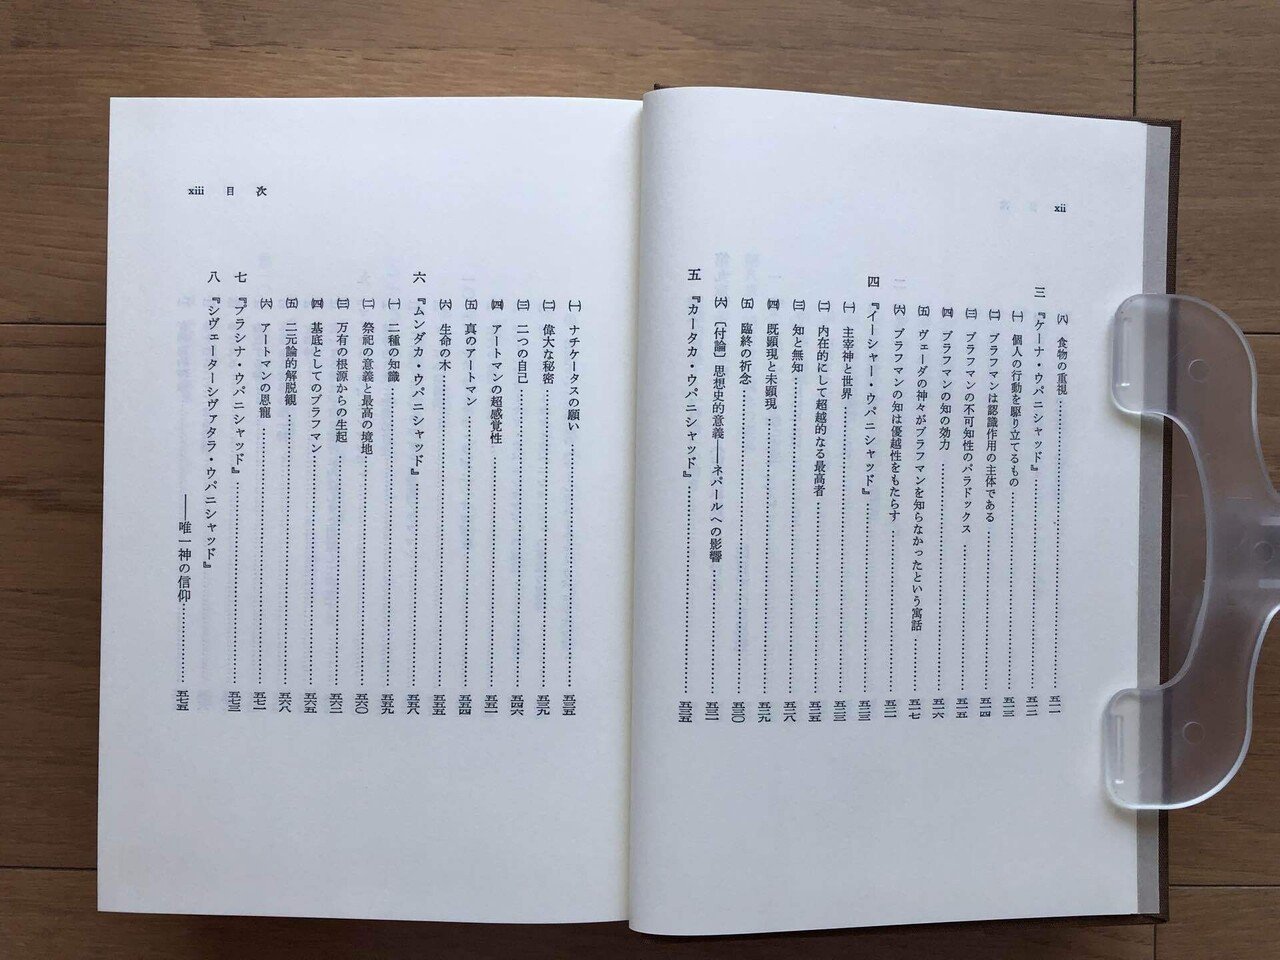 xii
㈧ 食物の重視……五一一
三 『ケーナ・ウパニシャッド』……五一二
㈠ 個人の行動を駆り立てるもの……五一三
㈡ ブラフマンは認識作用の主体である……五一四
㈢ ブラフマンの不可知性のパラドックス……五一五
㈣ ブラフマンの知の効力……五一六
㈤ ヴェーダの神々がブラフマンを知らなかったという寓話……五一七
㈥ ブラフマンの知は優越性をもたらす……五二一
四 『イーシャー・ウパニシャッド』……五二三
㈠ 主宰神と世界……五二三
㈡ 内在的にして超越的なる最高者……五二五
㈢ 知と無知……五二八
㈣ 既顕現と未顕現……五二九
㈤ 臨終の祈念……五三〇
㈥ 〔付論〕思想史的意義――ネパールへの影響……五三二
五 『カータカ・ウパニシャッド』……五三五
xiii 目次
㈠ ナチケータスの願い……五三五
㈡ 偉大な秘密……五三九
㈢ 二つの自己……五四六
㈣ アートマンの超感覚性……五五一
㈤ 真のアートマン……五五四
㈥ 生命の木……五五五
六 『ムンダカ・ウパニシャッド』……五五八
㈠ 二種の知識……五五九
㈡ 祭祀の意義と最高の境地……五六〇
㈢ 万有の根源からの生起……五六二
㈣ 基底としてのブラフマン……五六五
㈤ 二元論的解脱観……五六八
㈥ アートマンの恩寵……五七一
七 『プラシナ・ウパニシャッド』……五七三
八 『シヴェーターシヴァタラ・ウパニシャッド』
――唯一神の信仰……五七五